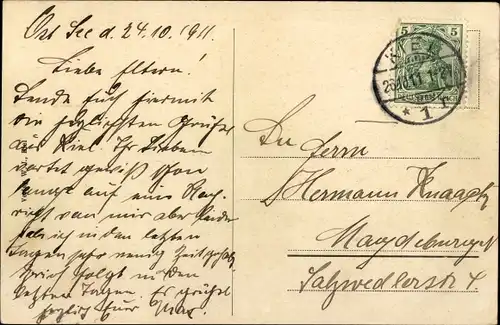 Ost See d. 24.10.1911.
Liebe Eltern!
Sende Euch hiermit
die herzlichsten Grüße
aus Kiel. Ihr Lieben
wartet gewiß schon
lange auf eine Nach-
richt von mir aber leider
hab ich in den letzten
Tagen sehr wenig Zeit gehabt
Brief folgt in den
letzten Tagen. Es grüßt
herzlich Euer
5 5
KIEL
11 1-2
* 1
An Herrn
Hermann
Magdeburg
Salzwedlerstr 4